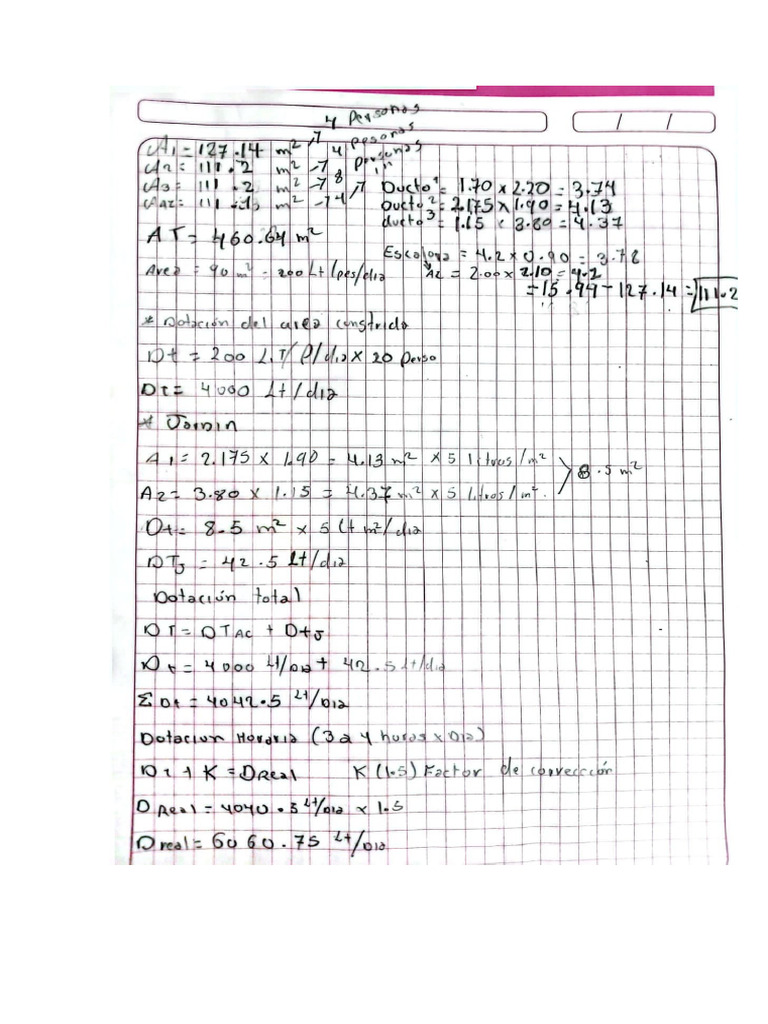 4 Personas
A1 = 127.14 m² → 4 Personas
A2 = 111.2 m² → 8 Personas
A3 = 111.2 m² → 4
AAZ = 111.13 m² →
Ducto¹ = 1.70 x 2.20 = 3.74
Ducto² = 2.175 x 1.90 = 4.13
ducto³ = 1.15 x 3.80 = 4.37
AT = 460.64 m²
Escalera = 4.2 x 0.90 = 3.78
Area = 90 m² = 200 Lt/pes/dia
Az = 2.00 x 2.10 = 4.2
= 15.99 - 127.14 = 111.2
* Dotación del area construida
Dt = 200 LT/P/dia x 20 perso
Dt = 4000 Lt/dia
* Jardin
A1 = 2.175 x 1.90 = 4.13 m² x 5 litros/m²
8.5 m²
A2 = 3.80 x 1.15 = 4.37 m² x 5 litros/m².
Dt = 8.5 m² x 5 Lt m²/dia
DTJ = 42.5 Lt/dia
Dotación total
DT = DTAC + DtJ
Dt = 4000 Lt/Dia + 42.5 Lt/dia
Σ Dt = 4042.5 Lt/Dia
Dotacion Horaria (3 a 4 horas x Dia)
Dt + K = DReal K (1.5) Factor de corrección
D Real = 4040.5 Lt/Dia x 1.5
D real = 6060.75 Lt/Dia